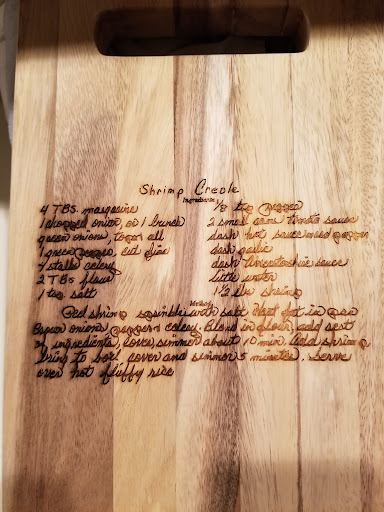 Shrimp Creole
Ingredients
4 TBS. margarine
1 chopped onion, or 1 bunch
green onions, tops & all
1 green pepper, cut fine
4 stalks celery
2 TBS flour
1 tsp salt
1/8 tsp pepper
2 small cans tomato sauce
dash hot sauce
dash garlic
dash sauce
little water
1 1/2 lbs shrimp
Method
Peel shrimp sprinkle with salt. Heat fat in pan
onions, peppers celery. Blend in flour, add rest
of ingredients, cover, simmer about 10 min. Add shrimp
bring to boil cover and simmer 5 minutes. Serve
over hot fluffy rice